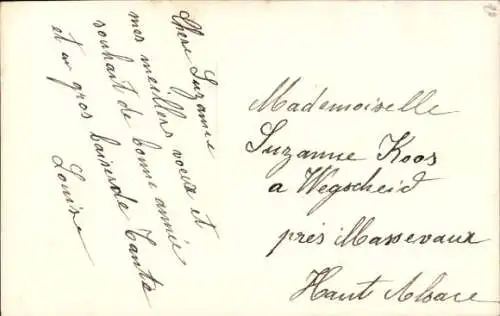 Chère Suzanne
mes meillers voeux et
souhait de bonne année
et un gros baiser de Tanta
Louise
Mademoiselle
Suzanne Koos
a Wegscheid
près Massevaux
Haut Alsace